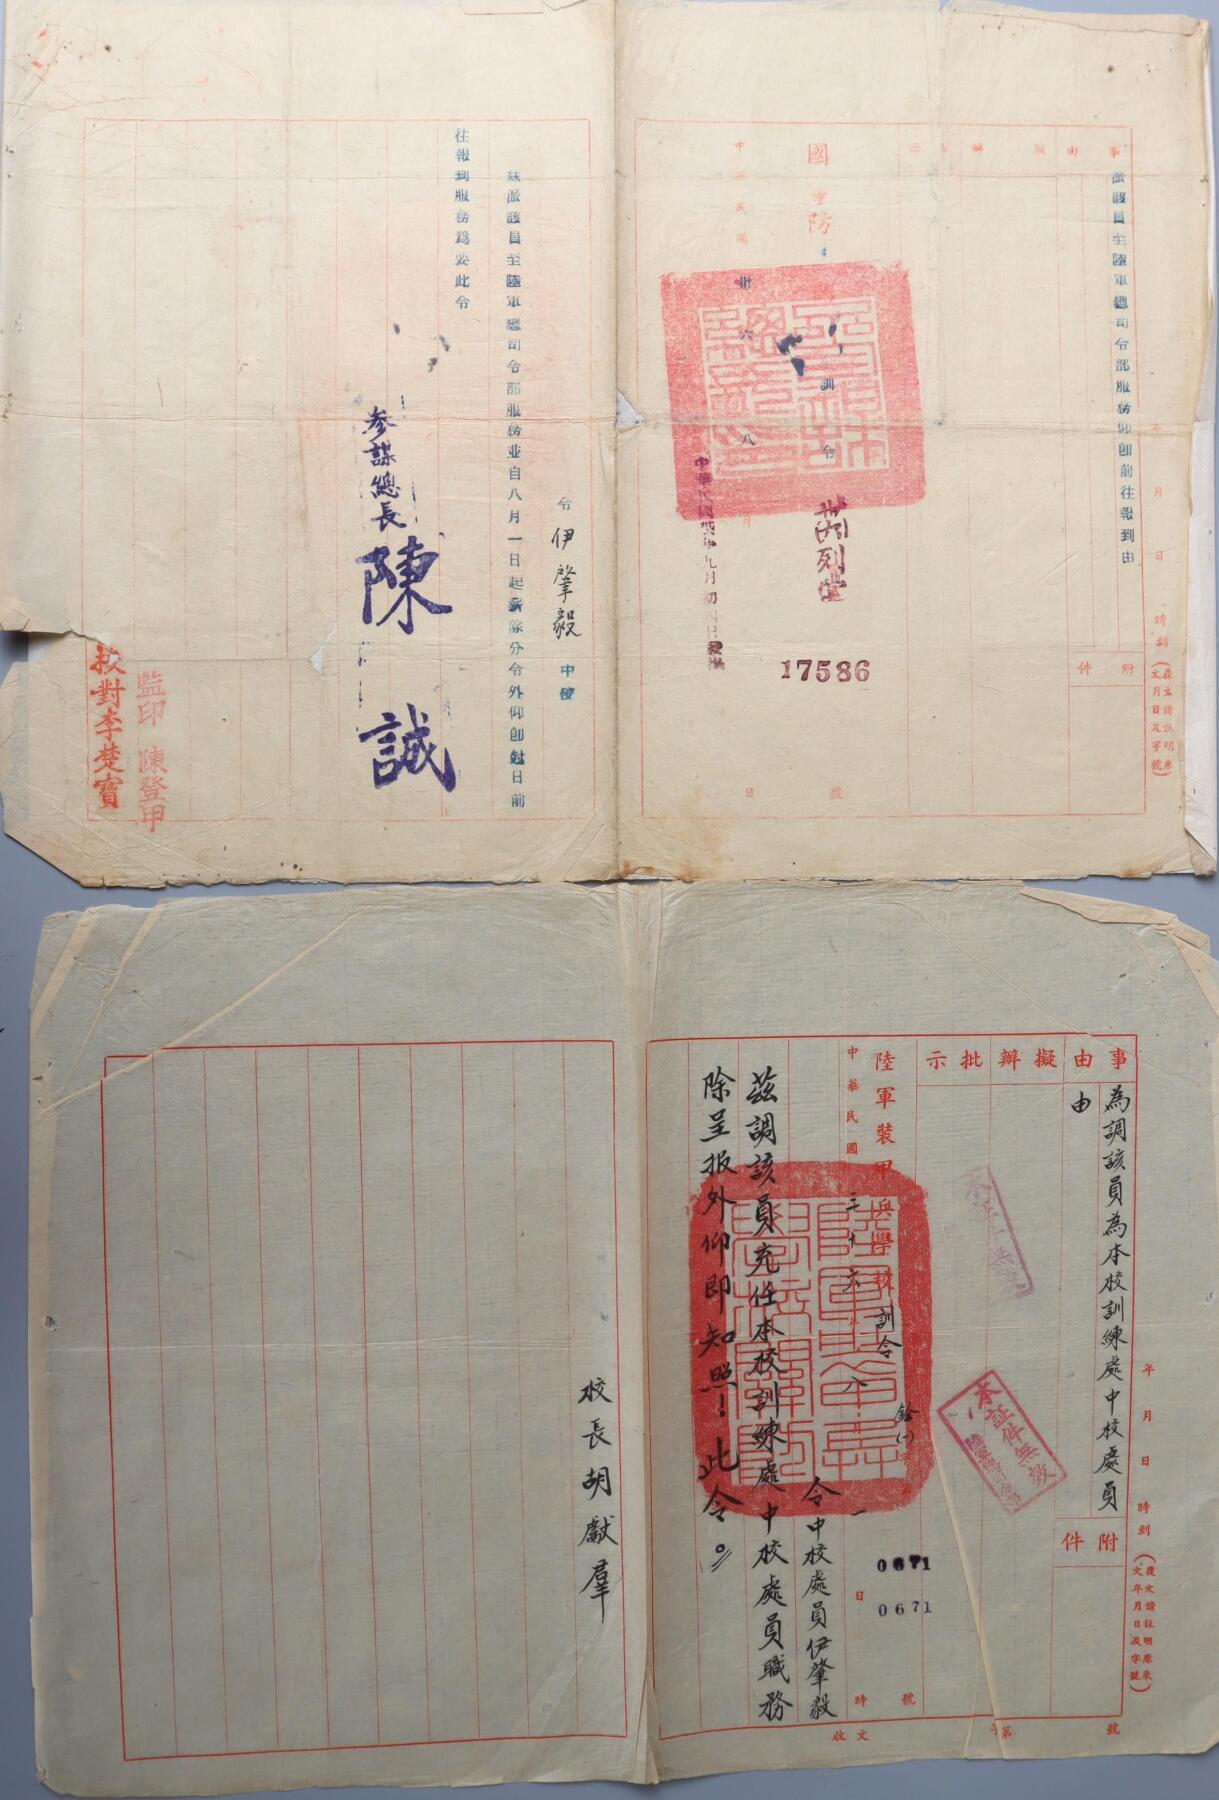 事由擬辦批示
派該員至陸軍總司令部服務仰卽前往報到由
附件
月
日
時到
(復文請註明來文月日及字號)
國防
訓令
列堂
17586
號
中民國卅六八月日
中華民國卅六年九月初四日發
令伊肇毅中校
茲派該員至陸軍總司令部服務並自八月一日起薪除分令外仰卽尅日前
往報到服務爲要此令
參謀總長陳誠
監印陳登甲
校對李楚寶
事由擬辦批示
為調該員為本校訓練處中校處員
由
附件
年月日時到
(覆文請註明原來文年月日及字號)
本証件無效
本証件無效
陸軍總司令部
陸軍裝甲兵學校訓令
0671
0671
號
中華民國三十六年八月一日時
令中校處員伊肇毅
茲調該員充任本校訓練處中校處員職務
除呈报外仰即知照！此令。
校長胡獻羣
收文字第號